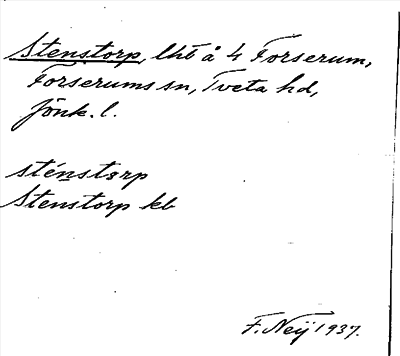 Stenstorp, lht å 4 Forserum,
Forserums sn, Tveta hd,
Jönk. l.
sténstɜrp
Stenstorp kb
F. Neij 1937.